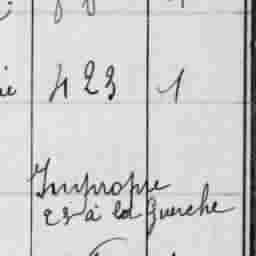 423 1
Impropre
à la Guerche